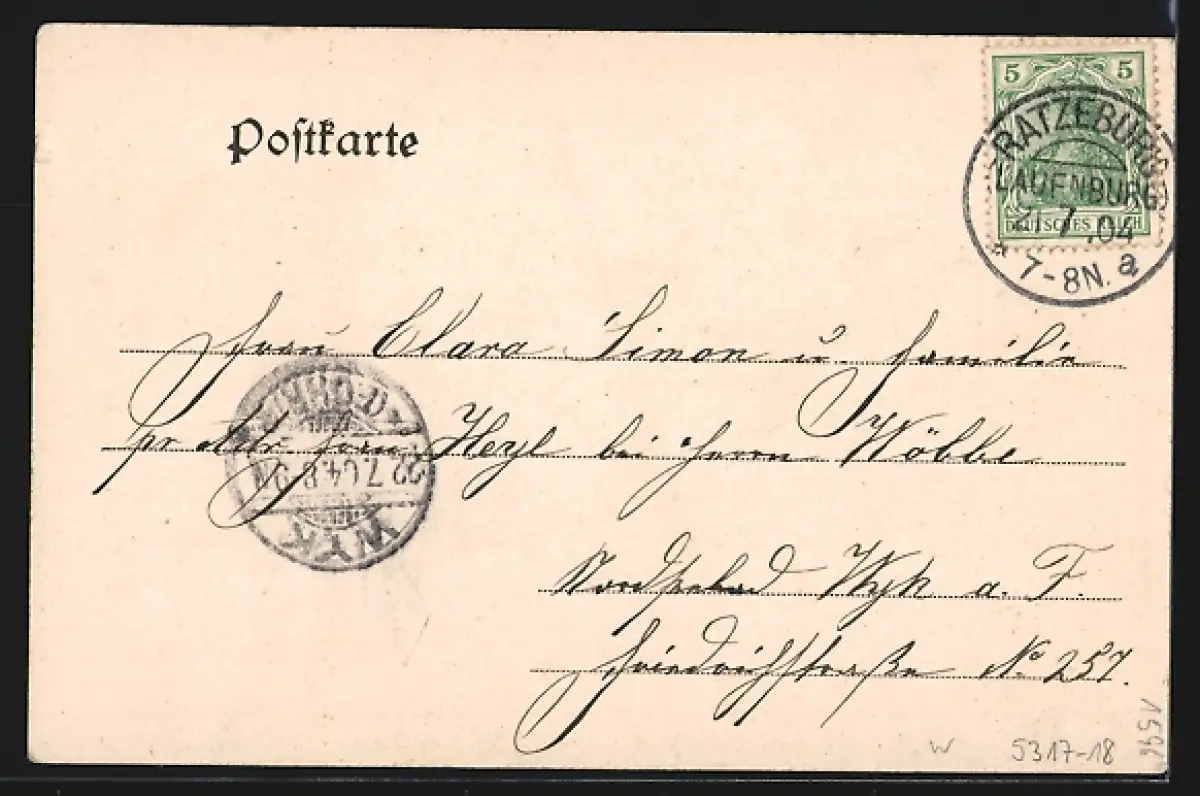 5 5
DEUTSCHES REICH
RATZEBURG
LAUENBURG
21.7.04
* 7-8N. a
Postkarte
Frau Clara Simon u. Familie
pr. Adr. Frau Heyl bei Herrn Wöbbe
Nordseebad Wyk a. F.
Friedrichstraße No 257.
WYK
22.7.04.8-9V
1596
W 5317-18